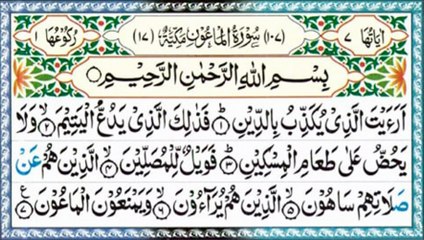 اٰيَاتُهَا ٧ (١٠٧) سُوْرَةُ الْمَاعُوْنِ مَكِّيَّةٌ (١٧) رُكُوْعُهَا ١
بِسْمِ اللّٰهِ الرَّحْمٰنِ الرَّحِيْمِ
اَرَءَيْتَ الَّذِىْ يُكَذِّبُ بِالدِّيْنِ ۝١ فَذٰلِكَ الَّذِىْ يَدُعُّ الْيَتِيْمَ ۝٢ وَلَا
يَحُضُّ عَلٰى طَعَامِ الْمِسْكِيْنِ ۝٣ فَوَيْلٌ لِّلْمُصَلِّيْنَ ۝٤ الَّذِيْنَ هُمْ عَنْ
صَلَاتِهِمْ سَاهُوْنَ ۝٥ الَّذِيْنَ هُمْ يُرَآءُوْنَ ۝٦ وَيَمْنَعُوْنَ الْمَاعُوْنَ ۝٧